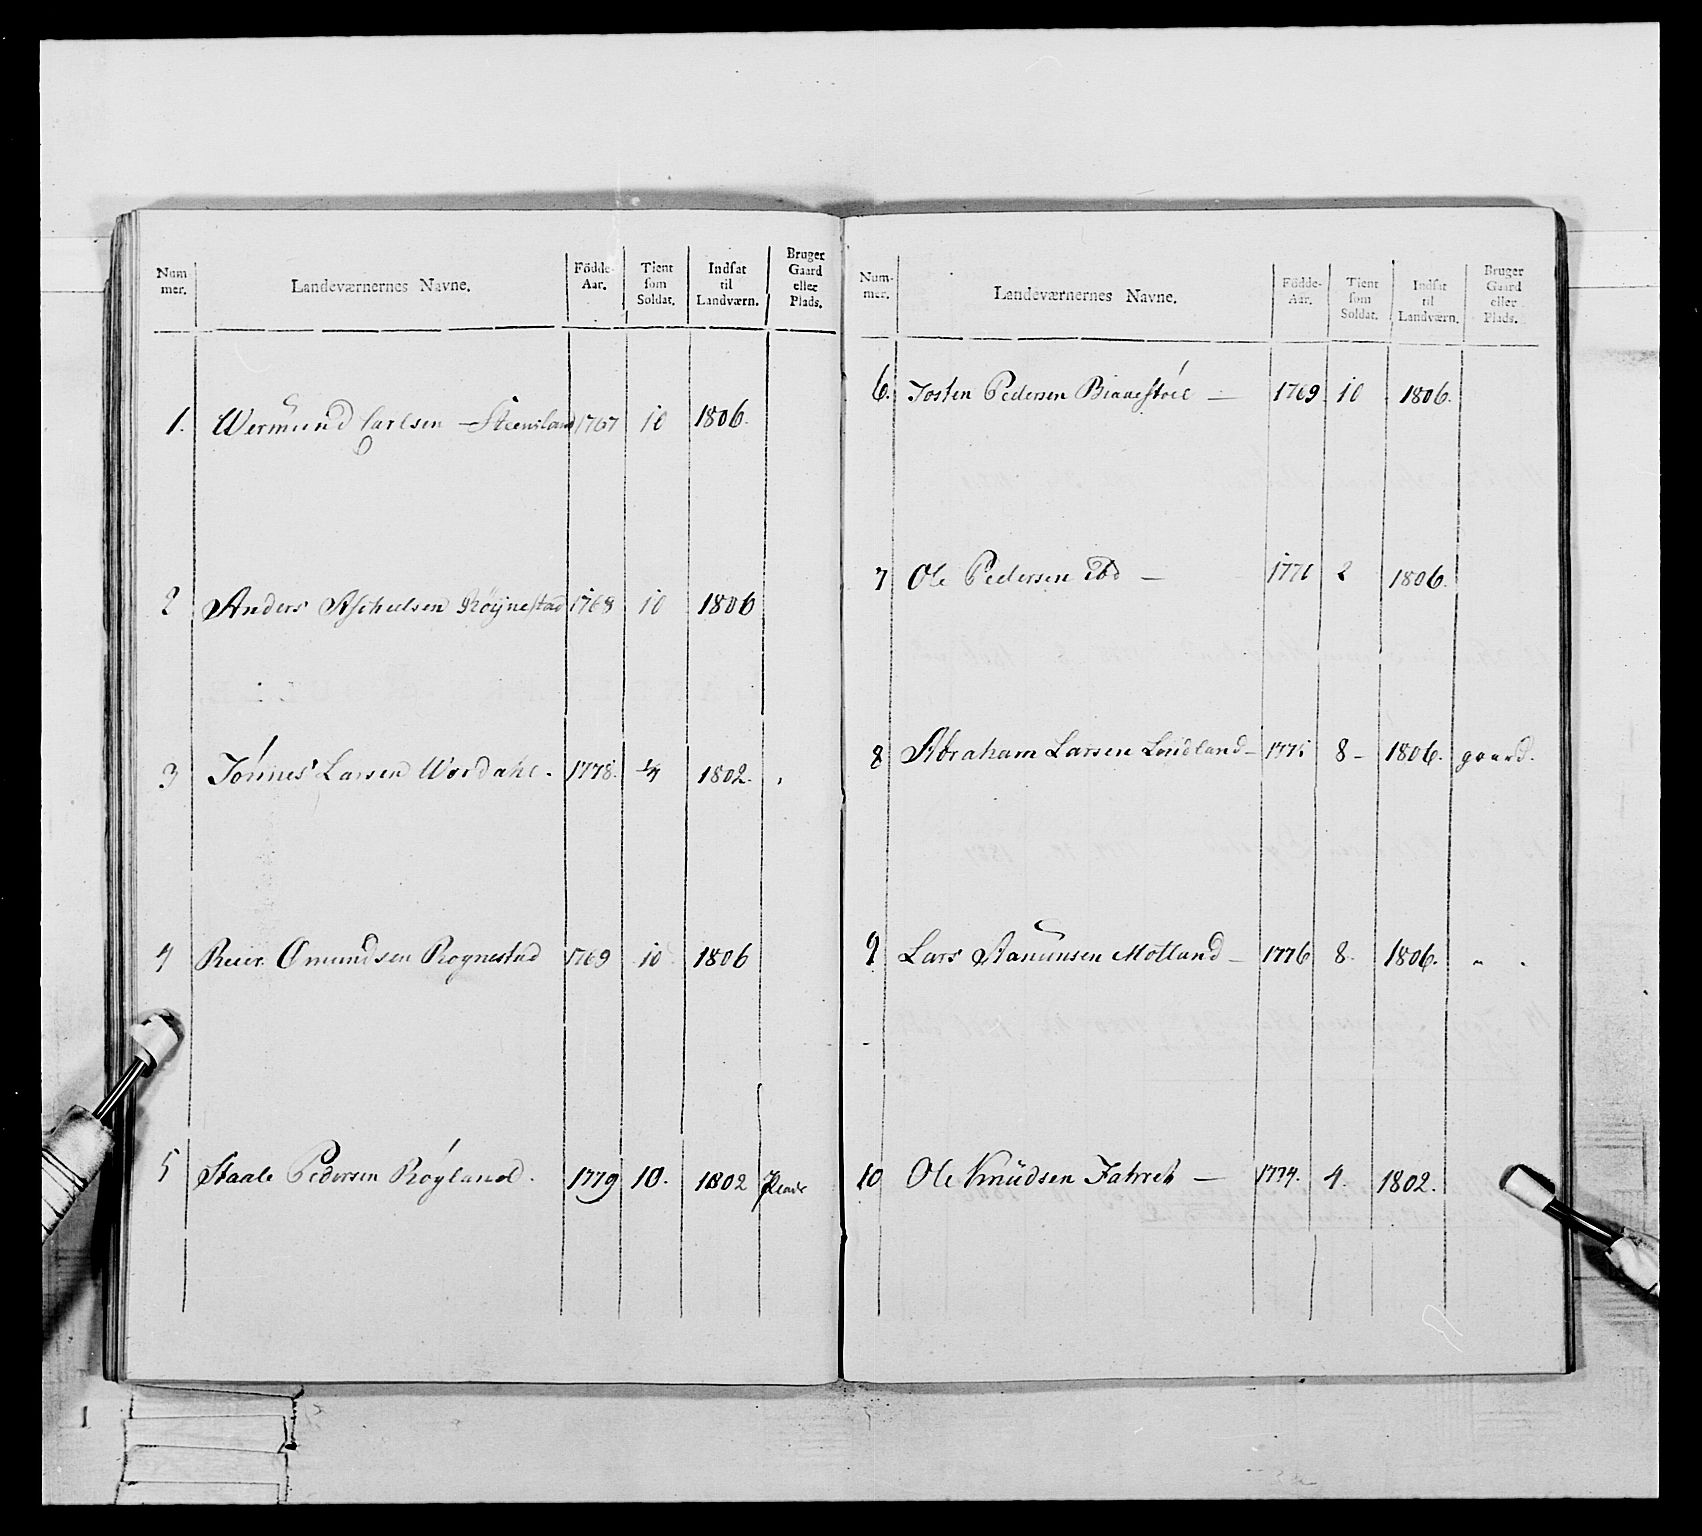 Num mer. Landeværnernes Navne. Födde-Aar. Tient som Soldat. Indsat til Landværn. Bruger Gaard eller Plads.
1. Wermund Carlsen - Steensland 1767 10 1806.
2 Anders Aschelsen Röynestad 1768 10 1806
3 Tönnes Larsen Wordahl. 1778. 1802.
4 Reier Omundsen Roynestad 1769 10 1806
5 Staale Pedersen Röyland. 1779 10. 1802 Plads
Num-mer. Landeværnernes Navne. Födde-Aar. Tient som Soldat. Indsat til Landværn. Bruger Gaard eller Plads.
6. Josten Pedersen 1769 10 1806.
7 Ole Pedersen ibd — 1771 2 1806.
8 Abraham Larsen Londland - 1775 8 - 1806. gaard.
9 Lars Aanunsen Motland - 1776 8. 1806. " .
10 Ole Knudsen — 1774. 4. 1802.